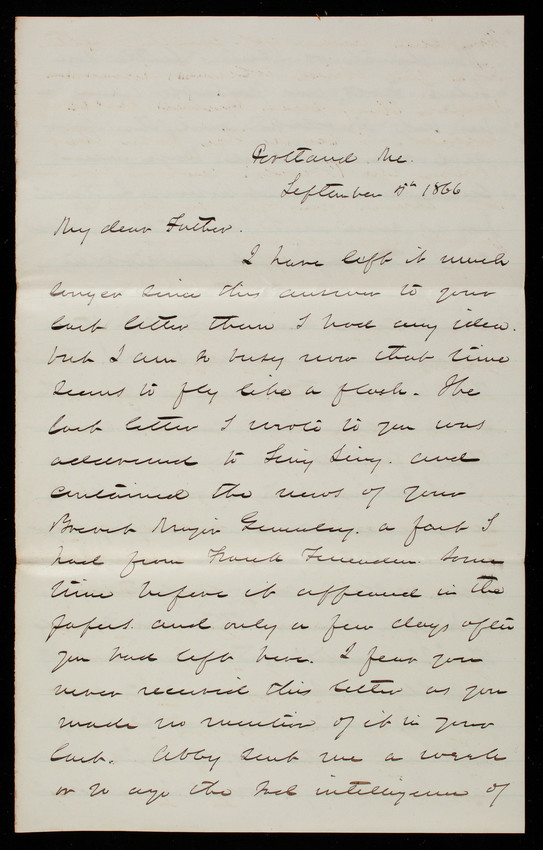 Portland Me.
September 4th 1866
My dear Father.
I have left it much
longer since this answer to your
last letter than I had any idea.
but I am so busy now that time
seems to fly like a flash. The
last letter I wrote to you was
addressed to Sing Sing. and
contained the news of your
Brevet Major Generalcy. a fact I
had from Frank Fessenden some
time before it appeared in the
papers. and only a few days after
you had left here. I fear you
never received this letter as you
made no mention of it in your
last. Abby sent me a week
or so ago the sad intelligence of